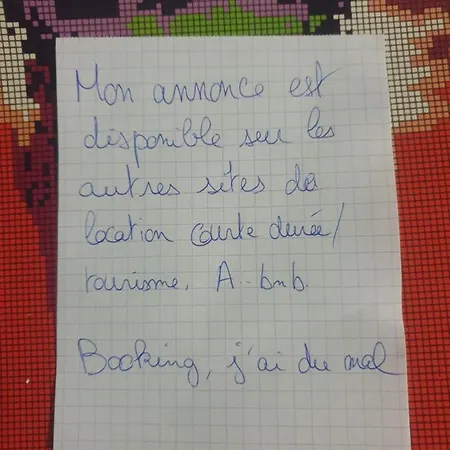 Mon annonce est
disponible sur les
autres sites de
location courte durée/
tourisme. A..bnb.
Booking, j'ai du mal